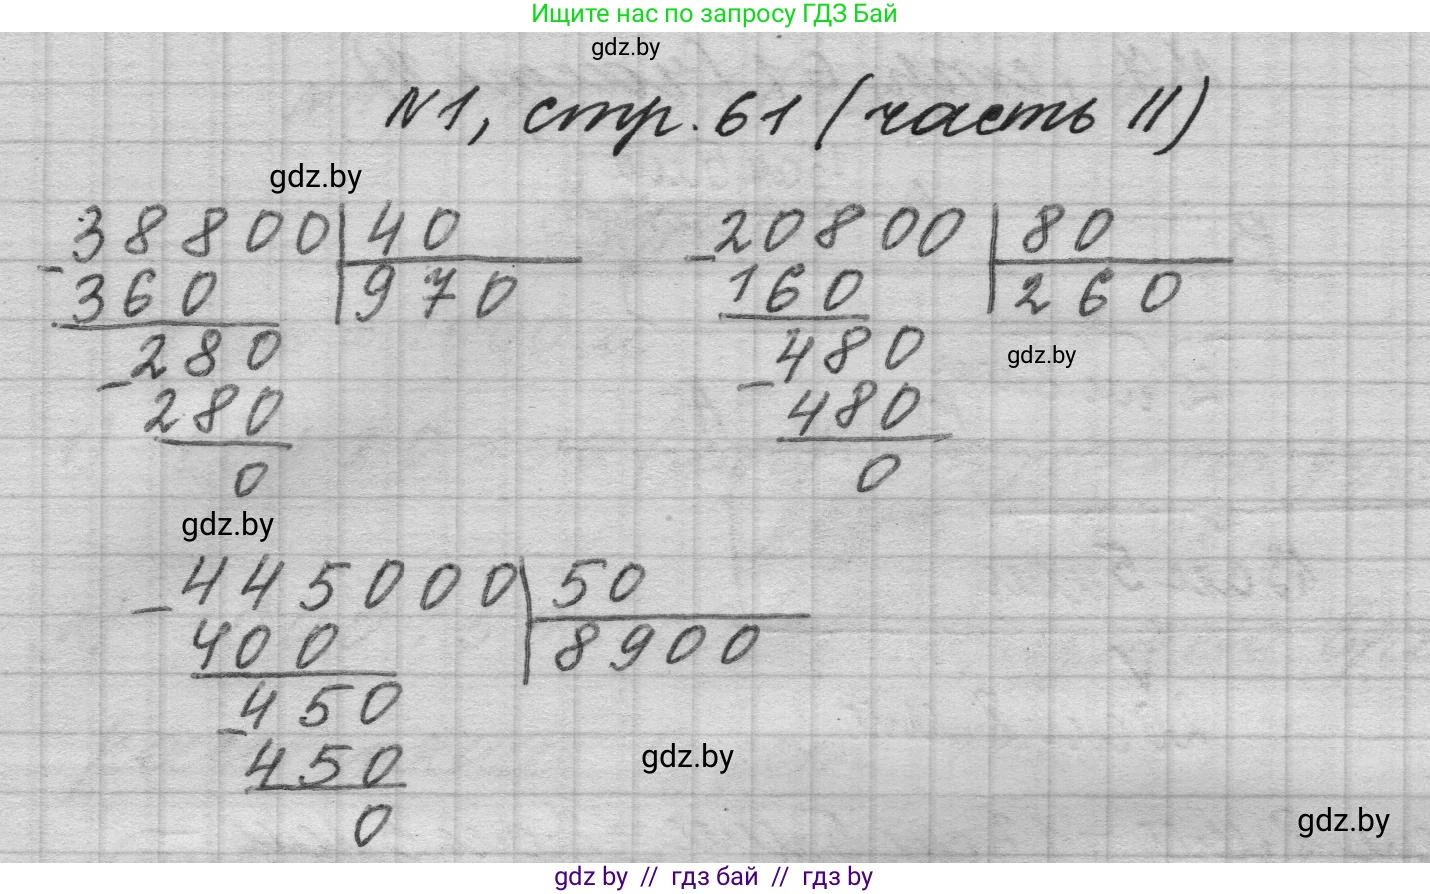 Ищите нас по запросу ГДЗ Бай
gdz.by
№1, стр. 61 (часть II)
gdz.by
38800 40
- 360 970
280
- 280
0
20800 80
- 160 260
480
- 480
0
gdz.by
gdz.by
- 445000 50
400 8900
450
- 450
0
gdz.by
gdz.by
gdz by // гдз бай // гдз by